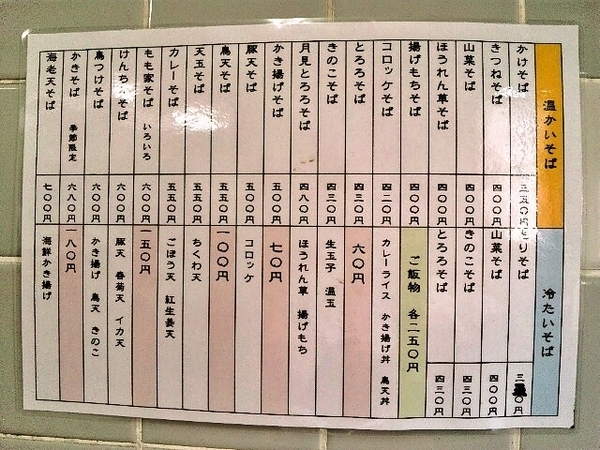 温かいそば
かけそば 三五〇円
きつねそば 四〇〇円
山菜そば 四〇〇円
ほうれん草そば 四〇〇円
揚げもちそば 四〇〇円
コロッケそば 四二〇円
とろろそば 四三〇円
きのこそば 四三〇円
月見とろろそば 四八〇円
かき揚げそば 五〇〇円
豚天そば 五五〇円
鳥天そば 五五〇円
天玉そば 五五〇円
カレーそば 五五〇円
もも家そば いろいろ 六〇〇円
けんちんそば 六〇〇円
鳥つけそば 六〇〇円
かきそば 季節限定 六八〇円
海老天そば 七〇〇円
冷たいそば
もりそば
山菜そば 四〇〇円
きのこそば 四三〇円
とろろそば 四三〇円
ご飯物 各二五〇円
カレーライス かき揚げ丼 鳥天丼
六〇円
生玉子 温玉
ほうれん草 揚げもち
七〇円
コロッケ
一〇〇円
ちくわ天
ごぼう天 紅生姜天
一五〇円
豚天 春菊天 イカ天
かき揚げ 鳥天 きのこ
一八〇円
海鮮かき揚げ